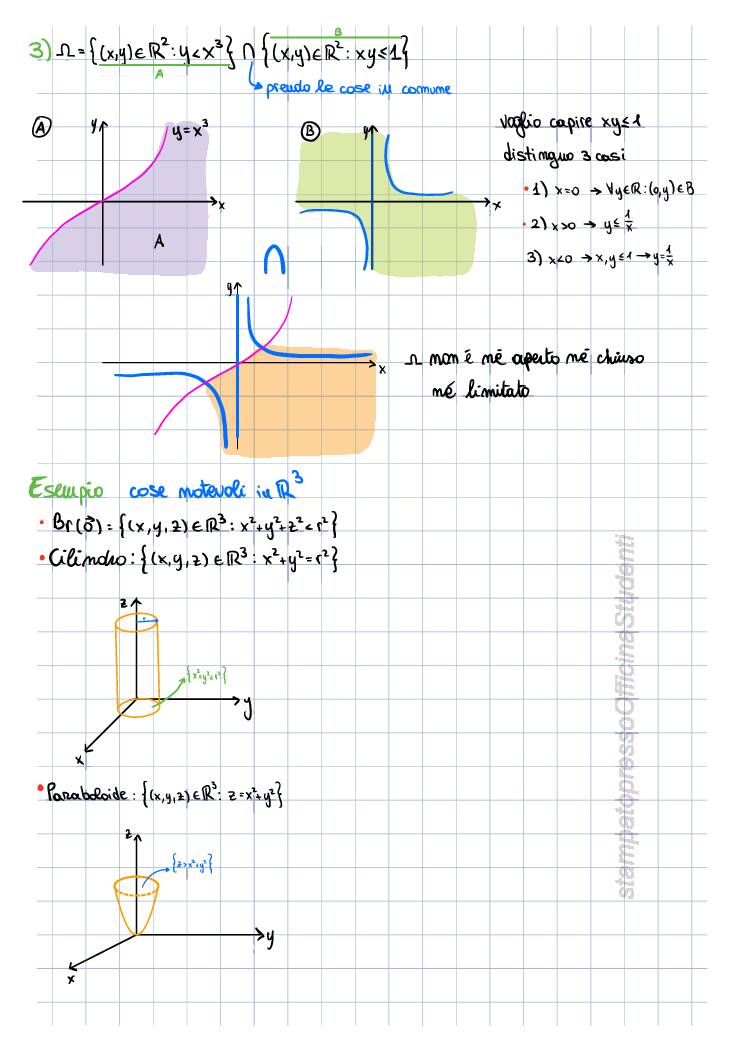 3) Ω = {(x,y)∈ℝ²: y<x³} ∩ {(x,y)∈ℝ²: xy≤1}
A
B
prendo le cose in comune
A
y
y=x³
x
A
B
y
x
voglio capire xy≤1
distinguo 3 casi
• 1) x=0 → ∀y∈ℝ: (0,y)∈B
• 2) x>0 → y≤1/x
3) x<0 → x,y≤1 → y=1/x
∩
y
x
Ω non è né aperto né chiuso
né limitato
Esempio cose notevoli in ℝ³
• Br(0⃗) = {(x,y,z)∈ℝ³: x²+y²+z²<r²}
• Cilindro: {(x,y,z)∈ℝ³: x²+y²=r²}
z
r
{x²+y²<r²}
y
x
• Paraboloide: {(x,y,z)∈ℝ³: z=x²+y²}
z
{z>x²+y²}
y
x
stampatopressoOfficinaStudenti